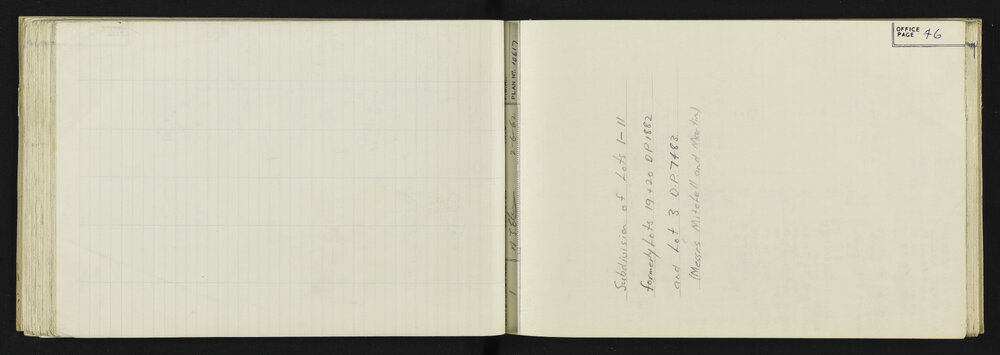 OFFICE PAGE 46
PLAN No. 10617
2-6-62
1
Subdivision of Lots 1-11
formerly Lots 19+20 DP1882
and Lot 3 D.P. 7483
(Messrs Mitchell and Martin)